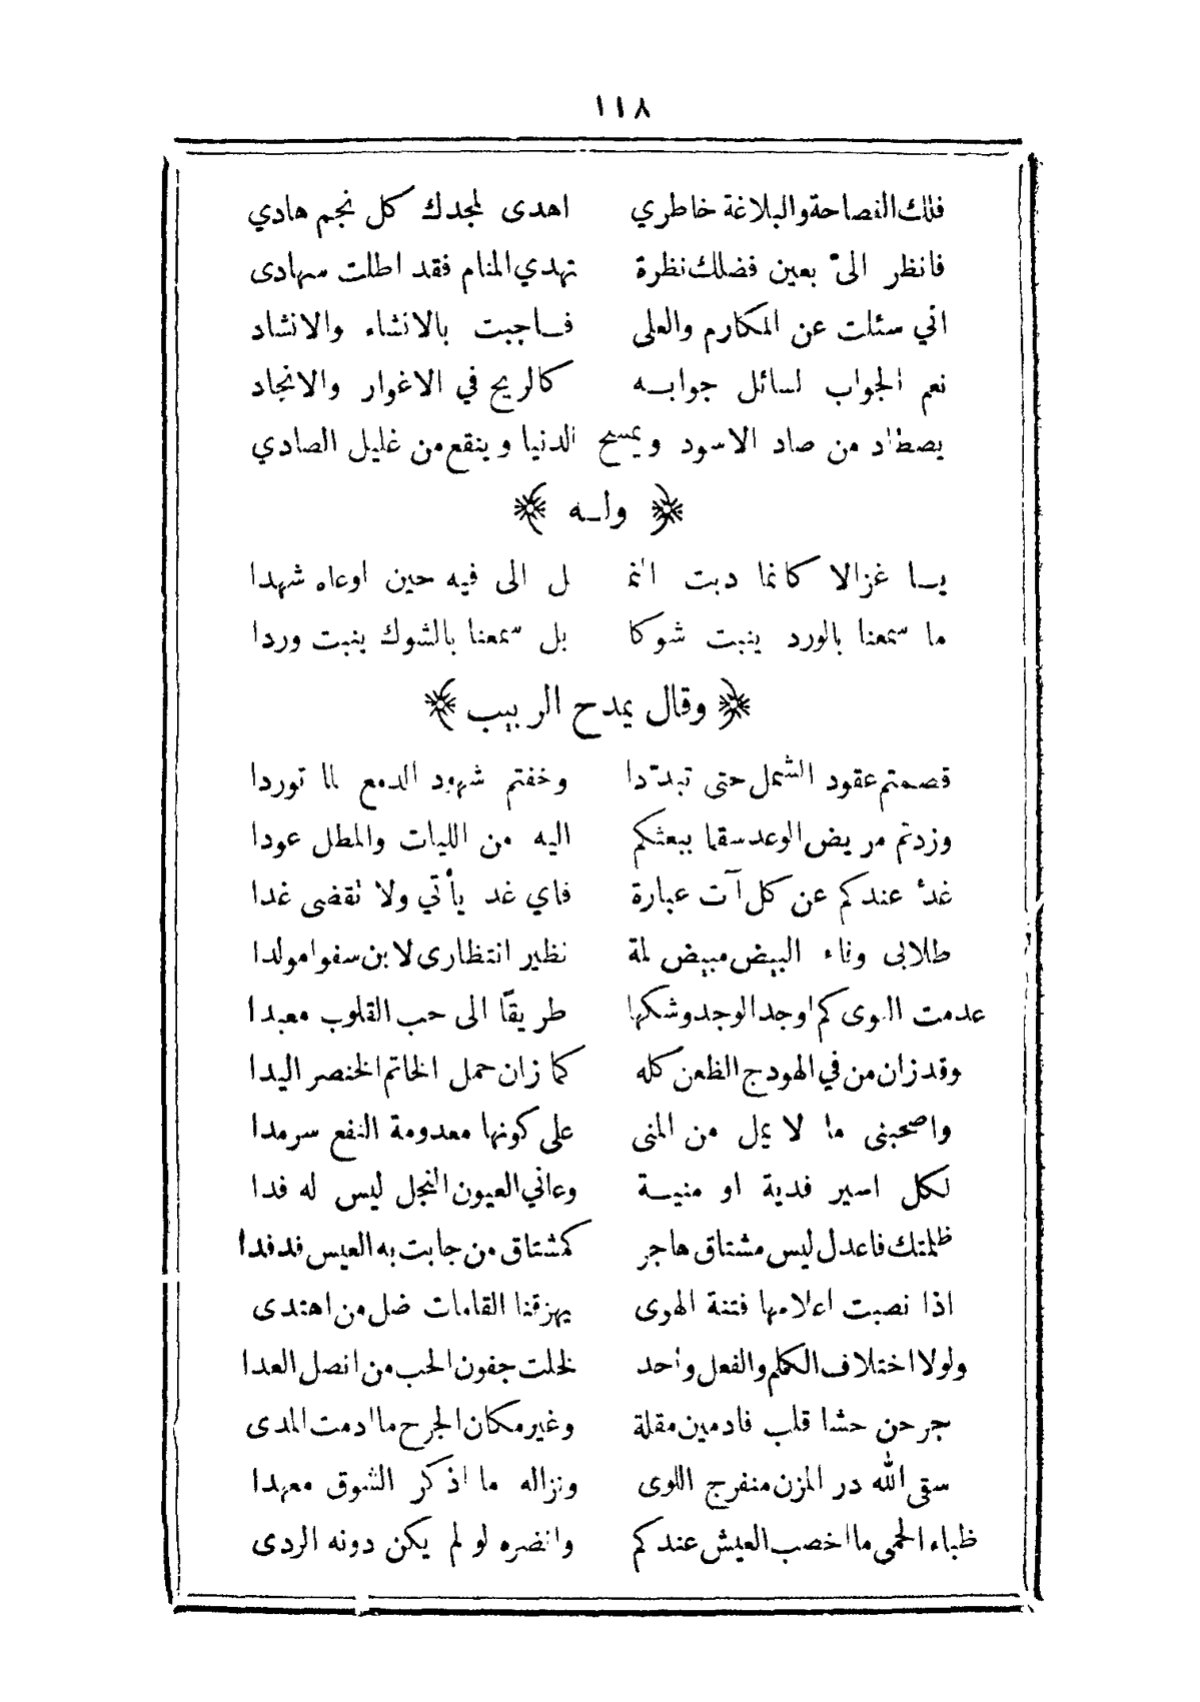 ١١٨
فلك الفصاحة والبلاغة خاطري اهدى لمجدك كل نجم هادي
فانظر الىّ بعين فضلك نظرة تهدي المنام فقد اطلت سهادى
اني سئلت عن المكارم والعلى فاجبت بالانشاء والانشاد
نعم الجواب لسائل جوابه كالريح في الاغوار والانجاد
يصطاد من صاد الاسود ويمسح الدنيا وينقع من غليل الصادي
﴿ وله ﴾
يا غزالا كانما دبت النم ل الى فيه حين اوعاه شهدا
ما سمعنا بالورد ينبت شوكا بل سمعنا بالشوك ينبت وردا
﴿ وقال يمدح الربيب ﴾
قصمتم عقود الشمل حتى تبدّدا وخفتم شهود الدمع لما توردا
وزدتم مريض الوعد سقما ببعثكم اليه من الليات والمطل عودا
غدٌ عندكم عن كل آت عبارة فاي غد يأتي ولا تقضى غدا
طلابى وفاء البيض مبيض لمة نظير انتظارى لابن سفوا مولدا
عدمت النوى كم اوجد الوجد وشكها طريقًا الى حب القلوب معبدا
وقد زان من في الهودج الظعن كله كما زان حمل الخاتم الخنصر اليدا
واصحبنى ما لا يمل من المنى على كونها معدومة النفع سرمدا
لكل اسير فدية او منية وعاني العيون النجل ليس له فدا
ظلمتك فاعدل ليس مشتاق هاجر كمشتاق من جابت به العيس فدفدا
اذا نصبت اعلامها فتنة الهوى بهزقنا القامات ضل من اهتدى
ولولا اختلاف الكلم والفعل واحد لخلت جفون الحب من انصل العدا
جرحن حشا قلب فادمين مقلة وغير مكان الجرح ما ادمت المدى
سقى الله در المزن منفرج اللوى ونزاله ما اذكر الشوق معهدا
ظباء الحمى ما اخصب العيش عندكم وانضره لو لم يكن دونه الردى